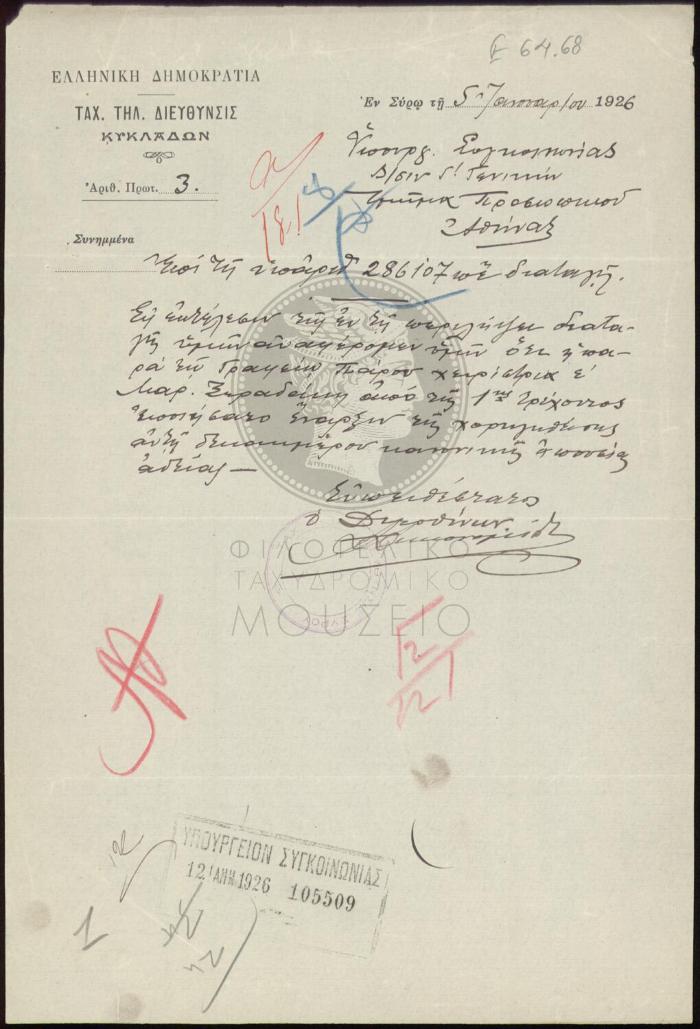 64.68
ΕΛΛΗΝΙΚΗ ΔΗΜΟΚΡΑΤΙΑ
ΤΑΧ. ΤΗΛ. ΔΙΕΥΘΥΝΣΙΣ
ΚΥΚΛΑΔΩΝ
Ἀριθ. Πρωτ. 3.
Συνημμένα
Ἐν Σύρῳ τῇ 5 Ἰανουαρίου 1926
Ὑπουργ. Συγκοινωνίας
Τμῆμα Προσωπικοῦ
Ἀθήνας
Ἐπὶ τῇ ὑπ' ἀριθ. 286107 διαταγῇ.
Εἰς ἐκτέλεσιν τῆς ἐν τῇ περιλήψει διατα-
γῆς ὑμῶν ἀναφέρομεν ὑμῖν ὅτι ἡ πα-
ρὰ τῷ Γραφείῳ Πάρου χειρίστρια ε'
Μαρ. ἀπὸ τῆς 1ης τρέχοντος
ἐποιήσατο ἔναρξιν τῆς χορηγηθείσης
αὐτῇ δεκαημέρου κανονικῆς ἀπουσίας
ἀδείας —
Εὐπειθέστατος
ὁ Διευθύνων
ΦΙΛΟΤΕΛΙΚΟ
ΤΑΧΥΔΡΟΜΙΚΟ
ΜΟΥΣΕΙΟ
12/1
ΥΠΟΥΡΓΕΙΟΝ ΣΥΓΚΟΙΝΩΝΙΑΣ
12 ΙΑΝ 1926 105509
1